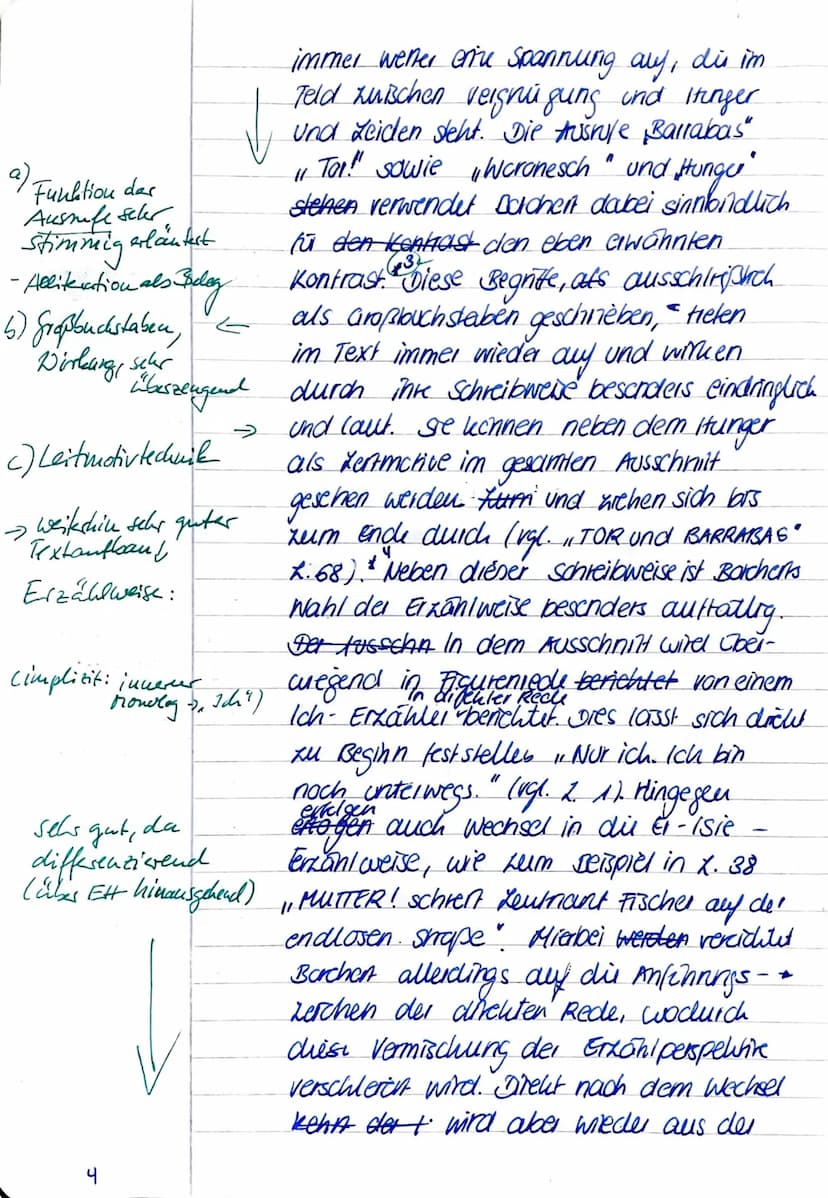 immer weiter eine Spannung auf, die im
Feld zwischen Vergnügung und Hunger
und Leiden steht. Die Ausrufe „Barrabas"
a)
„Tor!" sowie „Woronesch" und „Hunger"
Funktion der
Ausrufe sehr
stimmig erläutert
stehen verwendet Borchert dabei sinnbildlich
für den Kontrast den eben erwähnten
- Alliteration als Beleg
Kontrast. *3 Diese Begriffe, als ausschließlich
b) Großbuchstaben,
Wirkung, sehr
überzeugend
als Großbuchstaben geschrieben, treten
im Text immer wieder auf und wirken
durch ihre Schreibweise besonders eindringlich
und laut. Sie können neben dem Hunger
c) Leitmotivtechnik
als Leitmotive im gesamten Ausschnitt
gesehen werden zum und ziehen sich bis
→ weiterhin sehr guter
Textaufbau!
zum Ende durch (vgl. „TOR und BARRABAS"
Z. 68). *4 Neben dieser Schreibweise ist Borcherts
Erzählweise:
Wahl der Erzählweise besonders auffällig.
Der Ausschn In dem Ausschnitt wird über-
(implizit: innerer
Monolog → „Ich")
wiegend in Figurenrede berichtet von einem
in direkter Rede
Ich-Erzähler berichtet. Dies lässt sich direkt
zu Beginn feststellen „Nur ich. Ich bin
noch unterwegs." (vgl. Z. 1). Hingegen
erfolgen
sehr gut, da
differenzierend
(über EH hinausgehend)
auch Wechsel in die Er-/Sie-
Erzählweise, wie zum Beispiel in Z. 38
„MUTTER! schreit Leutnant Fischer auf der
endlosen Straße". Hierbei werden verzichtet
Borchert allerdings auf die Anführungs-
zeichen der direkten Rede, wodurch
diese Vermischung der Erzählperspektive
verschleiert wird. Direkt nach dem Wechsel
kehrt der wird aber wieder aus der
4